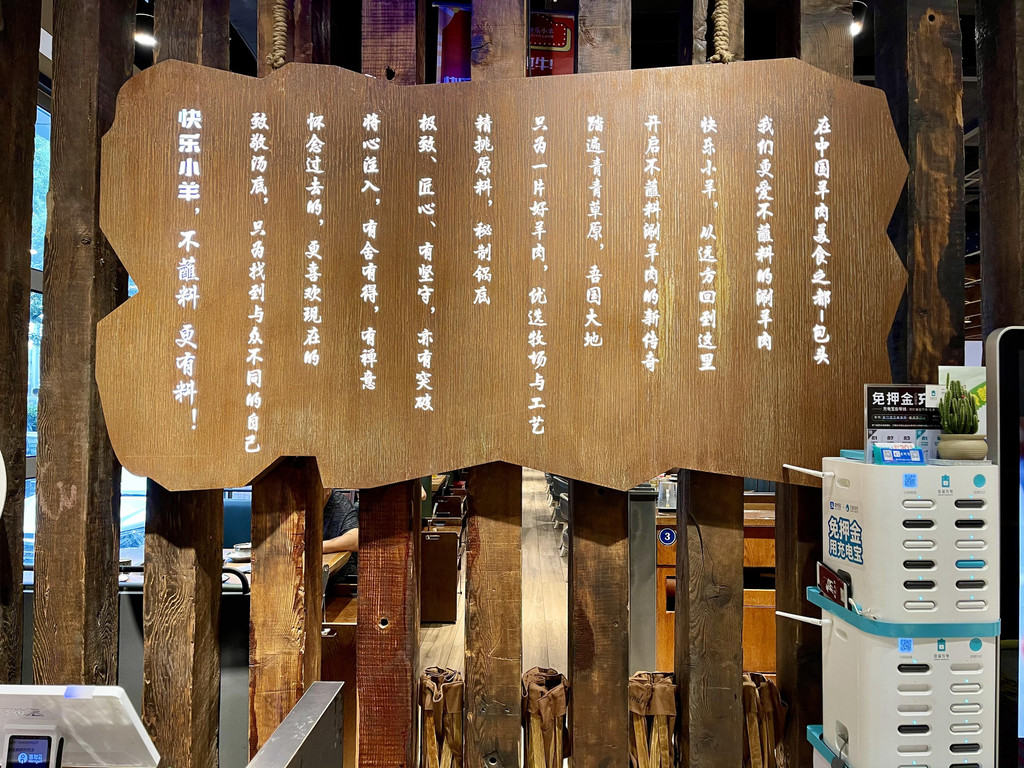 在中国羊肉美食之都—包头
我们更爱不蘸料的涮羊肉
快乐小羊，从远方回到这里
开启不蘸料涮羊肉的新传奇
踏遍青青草原，吾国大地
只为一片好羊肉，优选牧场与工艺
精挑原料，秘制锅底
极致、匠心、有坚守，亦有突破
将心注入，有舍有得，有禅意
怀念过去的，更喜欢现在的
致敬汤底，只为找到与众不同的自己
快乐小羊，不蘸料 更有料！
3
免押金充
免押金
用充电宝